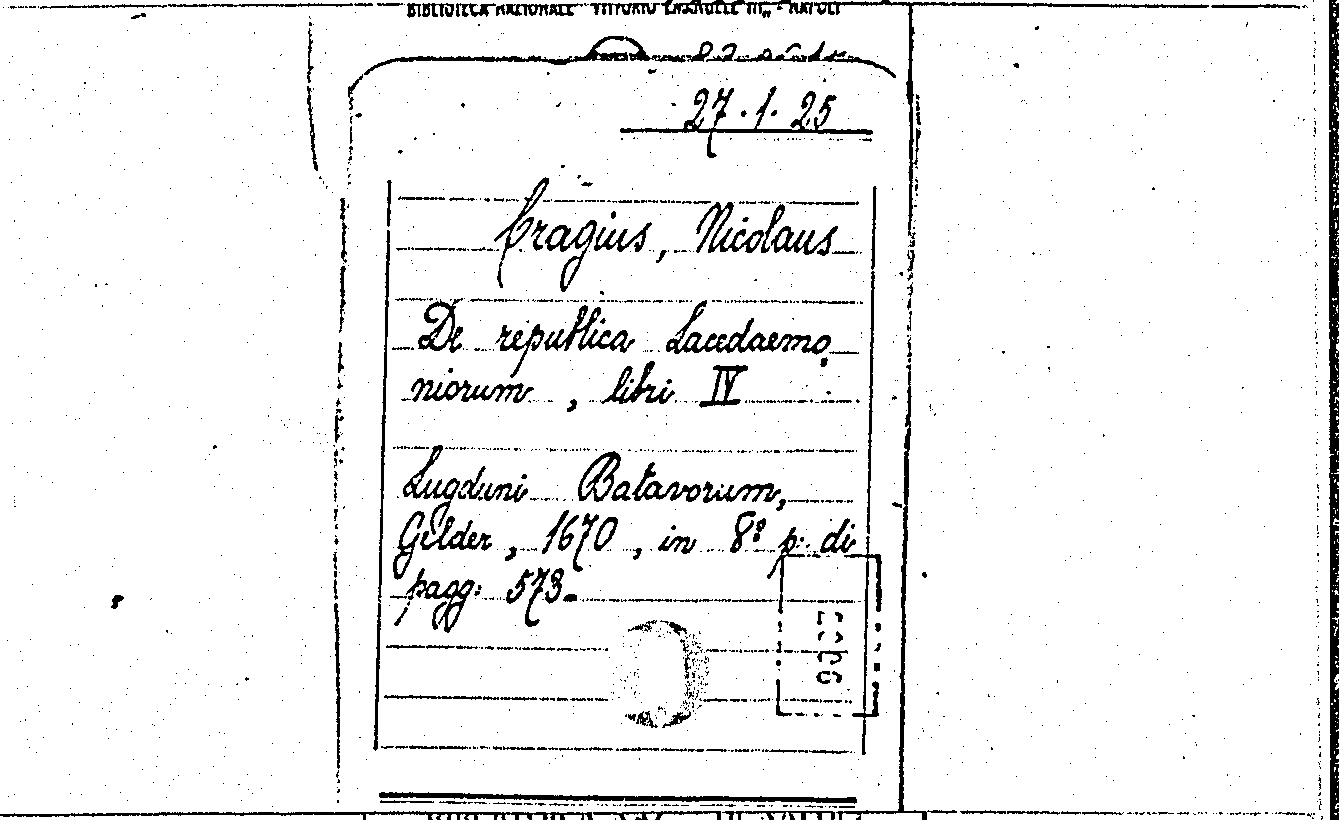 BIBLIOTECA NAZIONALE VITTORIO EMANUELE III - NAPOLI
27.1.25
Cragius, Nicolaus
De republica Lacedaemo
niorum, libri IV
Lugduni Batavorum,
Gelder, 1670, in 8º p. di
pagg. 573.